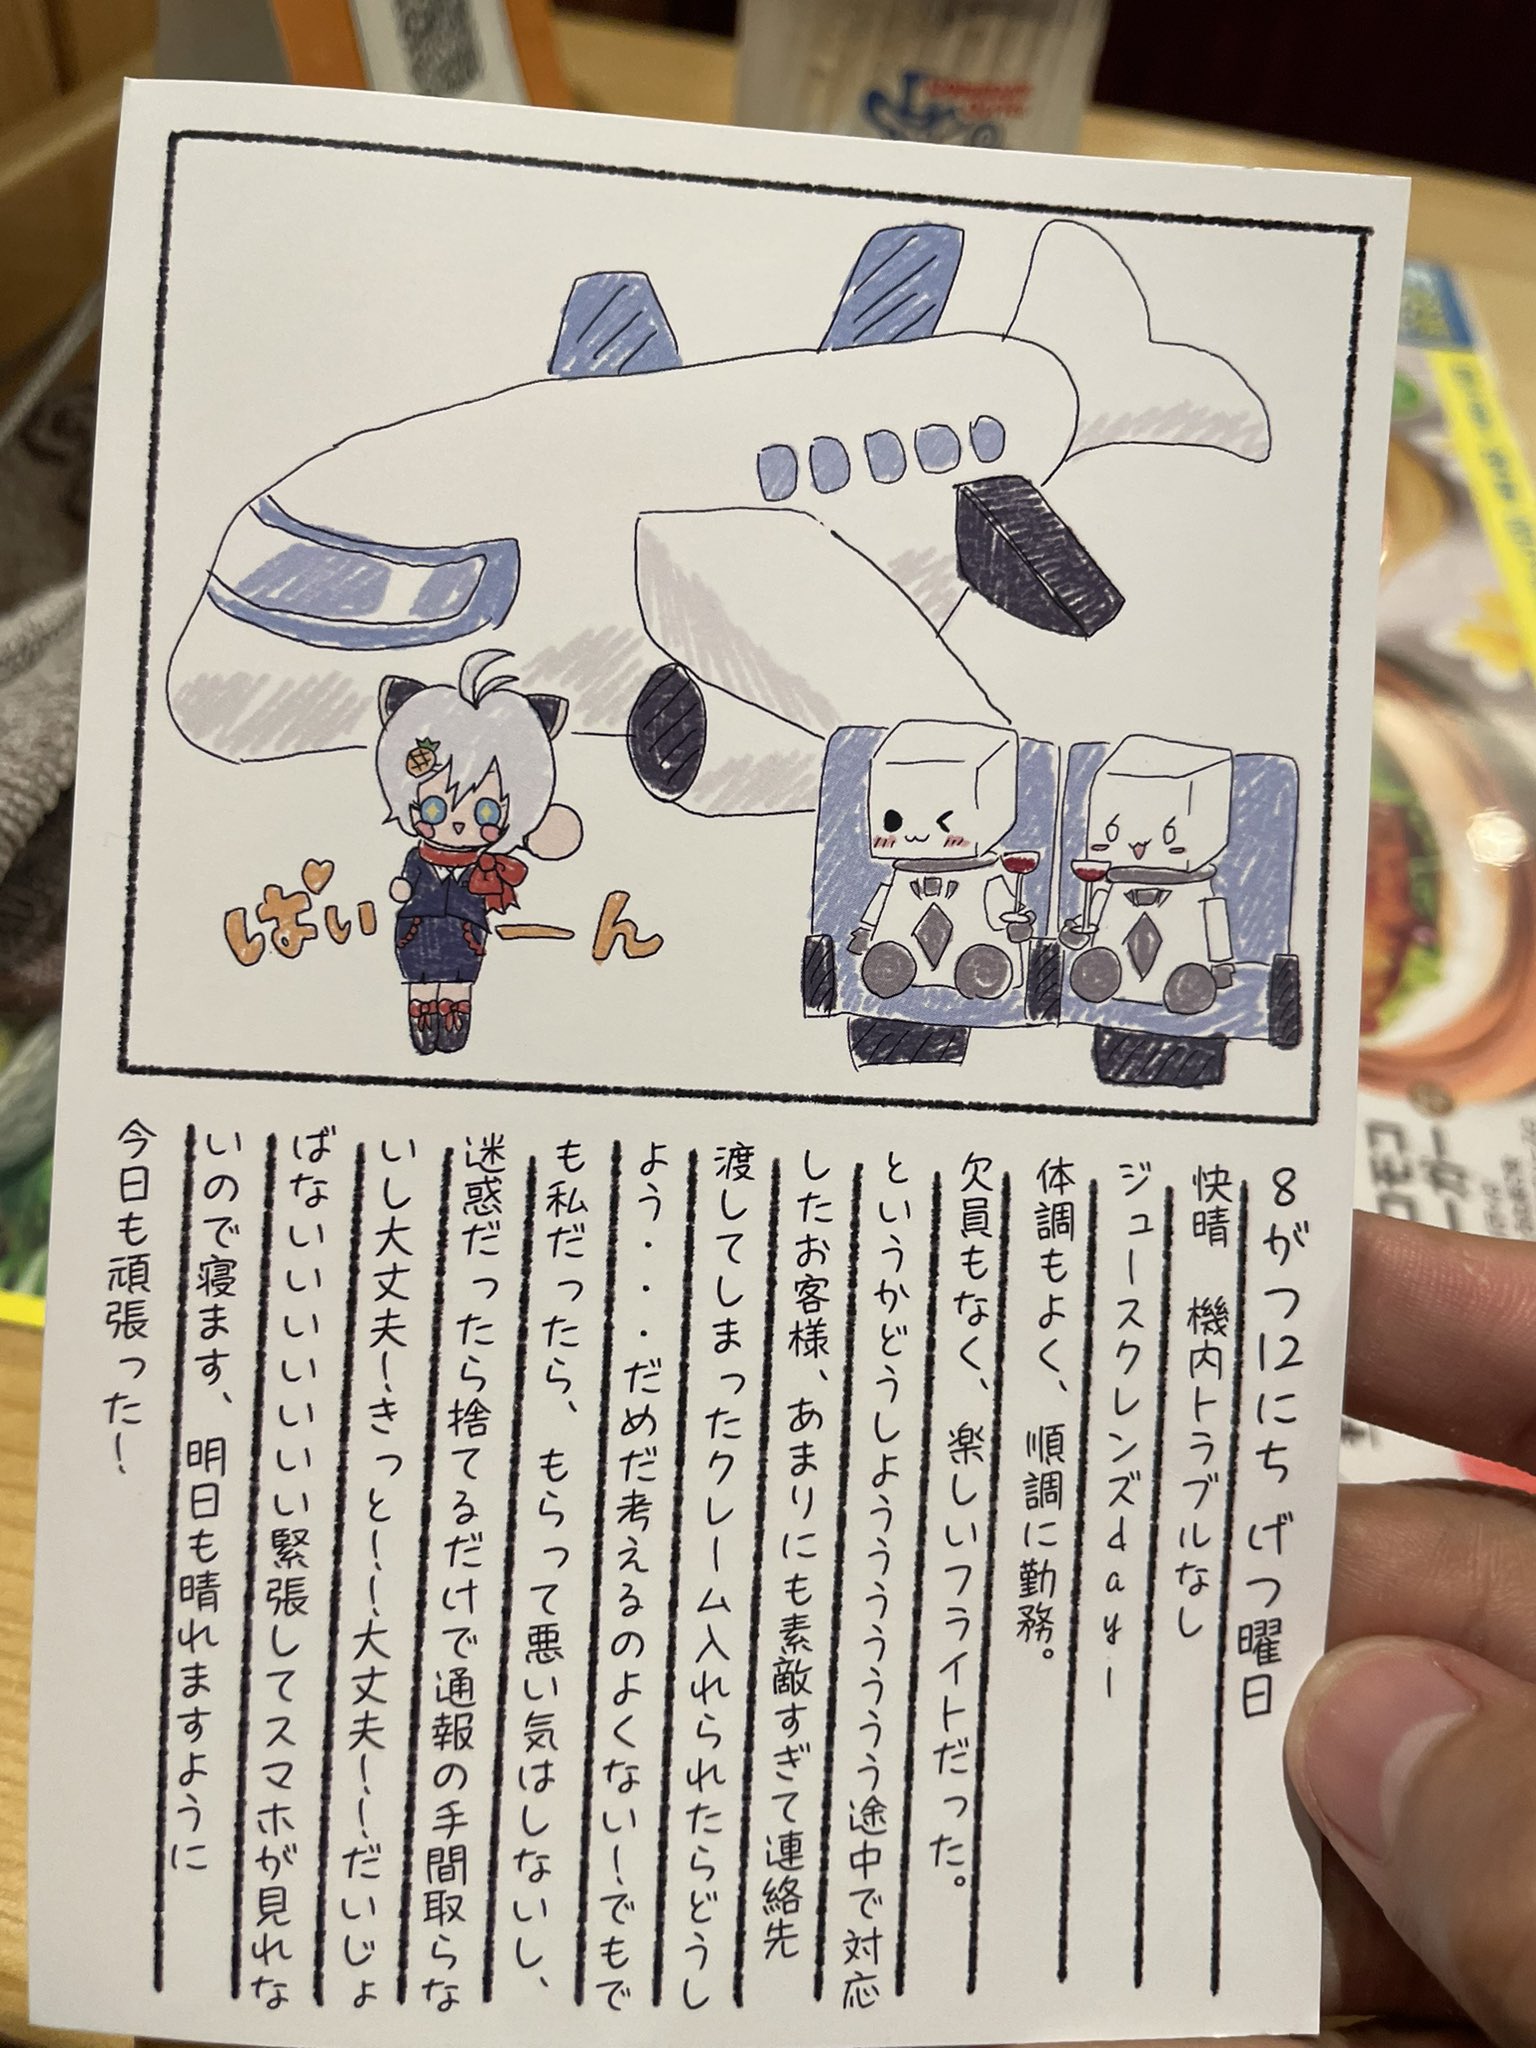 ばいーん
8がつ12にち げつ曜日
快晴 機内トラブルなし
ジュースクレンズday!
体調もよく、順調に勤務。
欠員もなく、楽しいフライトだった。
というかどうしようううううう途中で対応
したお客様、あまりにも素敵すぎて連絡先
渡してしまったクレーム入れられたらどうし
よう・・・だめだ考えるのよくない!でもで
も私だったら、もらって悪い気はしないし、
迷惑だったら捨てるだけで通報の手間取らな
いし大丈夫!きっと!!!大丈夫!!!だいじょ
ばないいいいいいい緊張してスマホが見れな
いので寝ます、明日も晴れますように
今日も頑張った!